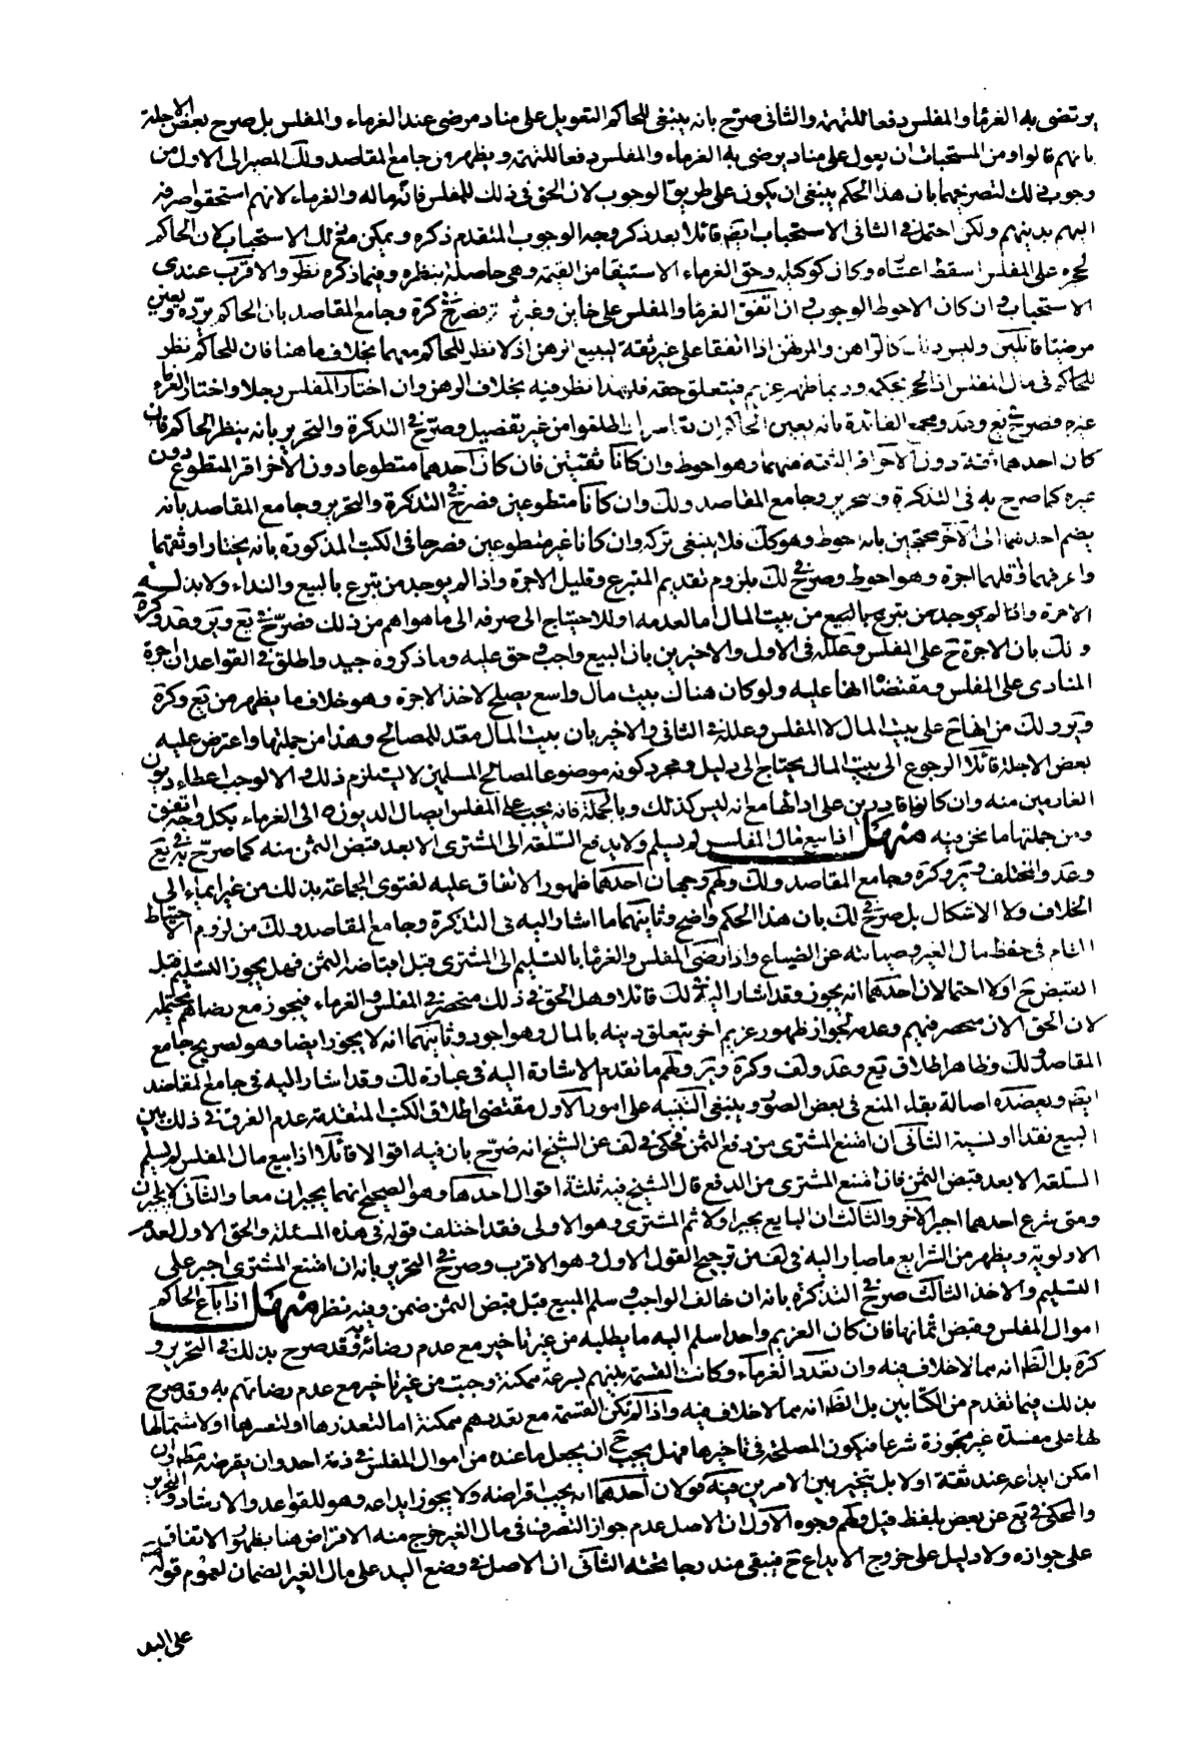 يرتضى به الغرماء والمفلس دفعا للتهمة والثانى صرّح بانه ينبغى للحاكم التعويل على مناد مرضى عند الغرماء والمفلس بل صرح بعض الاجلة
بانهم قالوا ومن المستحبات ان يعول على مناد يرضى به الغرماء والمفلس دفعا للتهمة ويظهر من جامع المقاصد ولك المصير الى الاول من
وجوب ذلك لتصريحهما بان هذا الحكم ينبغى ان يكون على طريق الوجوب لان الحق فى ذلك للمفلس فانه ماله والغرماء لانهم استحقوا صرفه
اليهم بدينهم ولكن احتمل فى الثانى الاستحباب ايضم قائلا بعد ذكر وجه الوجوب المتقدم ذكره ويمكن مع ذلك الاستحباب لان الحاكم
لحجره على المفلس اسقط اعتباره وكان كوكيله وحق الغرماء الاستيفاء من القيمة وهى حاصلة بنظره وفيما ذكره نظر والاقرب عندى
الاستحباب وان كان الاحوط الوجوب واذا اتفق الغرماء والمفلس على خاين وغير ثقة فصرح فى كرة وجامع المقاصد بان الحاكم يردّه ويعين
مرضيا قائلين وليس ذلك كالراهن والمرتهن اذا اتفقا على غير ثقة لبيع الرهن اذ لا نظر للحاكم معهما بخلاف ما هنا فان للحاكم نظر
للحاكم فى مال المفلس اذ الحجر بحكمه وربما ظهر غريم فيتعلق حقه فلهذا نظر فيه بخلاف الرهن وان اختار المفلس رجلا واختار الغرماء
غيره فصرح فى يع وعد ومجمع الفائدة بانه يعين الحاكم ان تعاسرا واطلقوا من غير تفصيل وصرّح فى التذكرة والتحرير بانه ينظر الحاكم فان
كان احدهما ثقة دون الآخر اقر الثقة منهما وهو احوط وان كانا ثقتين فان كان احدهما متطوعا دون الآخر اقر المتطوع دون
غيره كما صرح به فى التذكرة والتحرير وجامع المقاصد ولك وان كانا متطوعين فصرح فى التذكرة والتحرير وجامع المقاصد بانه
يضم احدهما الى الآخر محتجين بانه احوط وهو كك فلا ينبغى تركه وان كانا غير متطوعين فصرحا فى الكتب المذكورة بانه يختار اوثقهما
واعرفهما واقلهما اجرة وهو احوط وصرح فى لك بلزوم تقديم المتبرع وقليل الاجرة واذا لم يوجد من يتبرع بالبيع والنداء ولا بد له
الاجرة واذا لم يوجد من يتبرع بالبيع من بيت المال اما لعدمه او للاحتياج الى صرفه الى ما هو اهم من ذلك فصرّح فى يع ويرو عد وكرة
ولك بان الاجرة ح على المفلس وعلله فى الاول والاخيرين بان البيع واجب وحق عليه وما ذكروه جيد واطلق فى القواعد ان اجرة
المنادى على المفلس ومقتضاه انها عليه ولو كان هناك بيت مال واسع يصلح لاخذ الاجرة وهو خلاف ما يظهر من يع وكرة
وير ولك من انها ح على بيت المال لا المفلس وعلله فى الثانى والاخير بان بيت المال معد للمصالح وهذا من جملتها واعترض عليه
بعض الاجلة قائلا الرجوع الى بيت المال يحتاج الى دليل ومجرد كونه موضوعا لمصالح المسلمين لا يستلزم ذلك والا لوجب اعطاء ديون
الغارمين منه وان كانوا قادرين على ادائها مع انه ليس كذلك وبالجملة فانه يجب على المفلس ايصال الديون الى الغرماء بكل وجه اتفق
ومن جملتها ما نحن فيه منها اذا بيع مال المفلس لم يسلم ولا يدفع السلعة الى المشترى الا بعد قبض الثمن منه كما صرّح به فى يع
وعد والمختلف ويرو كرة وجامع المقاصد ولك ولهم وجهان احدهما ظهور الاتفاق عليه لفتوى الجماعة بذلك من غير ايماء الى
الخلاف ولا الاشكال بل صرح فى لك بان هذا الحكم واضح وثانيهما ما اشار اليه فى التذكرة وجامع المقاصد ولك من لزوم الاحتياط
التام فى حفظ مال الغير وصيانته عن الضياع واذا رضى المفلس والغرماء بالتسليم الى المشترى قبل اقباضه الثمن فهل يجوز التسليم قبل
القبض ح اولا احتمالان احدهما انه يجوز وقد اشار اليه فى لك قائلا وهل الحق فى ذلك منحصر فى المفلس والغرماء فيجوز مع رضاهم يحتمله
لان الحق الان منحصر فيهم وعدمه لجواز ظهور غريم اخر يتعلق دينه بالمال وهو اجود وثانيهما انه لا يجوز ايضا وهو لصريح جامع
المقاصد ولك وظاهر اطلاق يع وعد ولف وكرة وير ولهم ما تقدم الاشارة اليه فى عبارة لك وقد اشار اليه فى جامع المقاصد
ايضم ويعضده اصالة بقاء المنع فى بعض الصور وينبغى التنبيه على امور الاول مقتضى اطلاق الكتب المتقدمة عدم الفرق فى ذلك بين
البيع نقدا او نسية الثانى ان امتنع المشترى من دفع الثمن فحكى فى لف عن الشيخ انه صرّح بان فيه اقوالا قائلا اذا بيع مال المفلس لم يسلم
السلعة الا بعد قبض الثمن فان امتنع المشترى من الدفع قال الشيخ فيه ثلثة اقوال احدها وهو الصحيح انهما يجبران معا والثانى لا يجبران
ومتى شرع احدهما اجبر الآخر والثالث ان البايع يجبر اولا ثم المشترى وهو الاولى فقد اختلف قوله فى هذه المسئلة والحق الاول لعدم
الاولوية ويظهر من الشرايع ما صار اليه فى لف من ترجيح القول الاول وهو الاقرب وصرح فى التحرير بانه ان امتنع المشترى اجبر على
التسليم والاخذ الثالث صرح فى التذكرة بانه ان خالف الواجب وسلم المبيع قبل قبض الثمن ضمن وفيه نظر منها اذا باع الحاكم
اموال المفلس وقبض اثمانها فان كان الغريم واحدا سلم اليه ما يطلبه من غير تاخير مع عدم رضائه به وقد صرح بذلك فى التحرير و
كرة بل الظ انه مما لا خلاف فيه وان تعدد الغرماء وكانت القسمة بينهم بسرعة ممكنة وجبت من غير تاخير مع عدم رضائهم به وقد صرح
بذلك فيما تقدم من الكتابين بل الظ انه مما لا خلاف فيه واذا لم تكن القسمة مع تعددهم ممكنة اما لتعذرها او لتعسرها او لاشتمالها
لها على مفسدة غير مجوزة شرعا فيكون المصلحة فى تاخيرها فهل يجب ح ان يجعل ما عنده من اموال المفلس فى ذمة احد وان يقرضه مط وان
امكن ايداعه عند ثقة اولا بل يتخير بين الامرين فيه قولان احدهما انه يجب اقراضه ولا يجوز ايداعه وهو للقواعد والارشاد والتحرير
والمحكى فى يع عن بعض بلفظ قيل ولهم وجوه الاول ان الاصل عدم جواز التصرف فى مال الغير خرج منه الاقراض هنا بظهور الاتفاق
على جوازه ولا دليل على خروج الايداع ح فيبقى مندرجا تحته الثانى ان الاصل فى وضع اليد على مال الغير الضمان لعموم قوله
على اليد